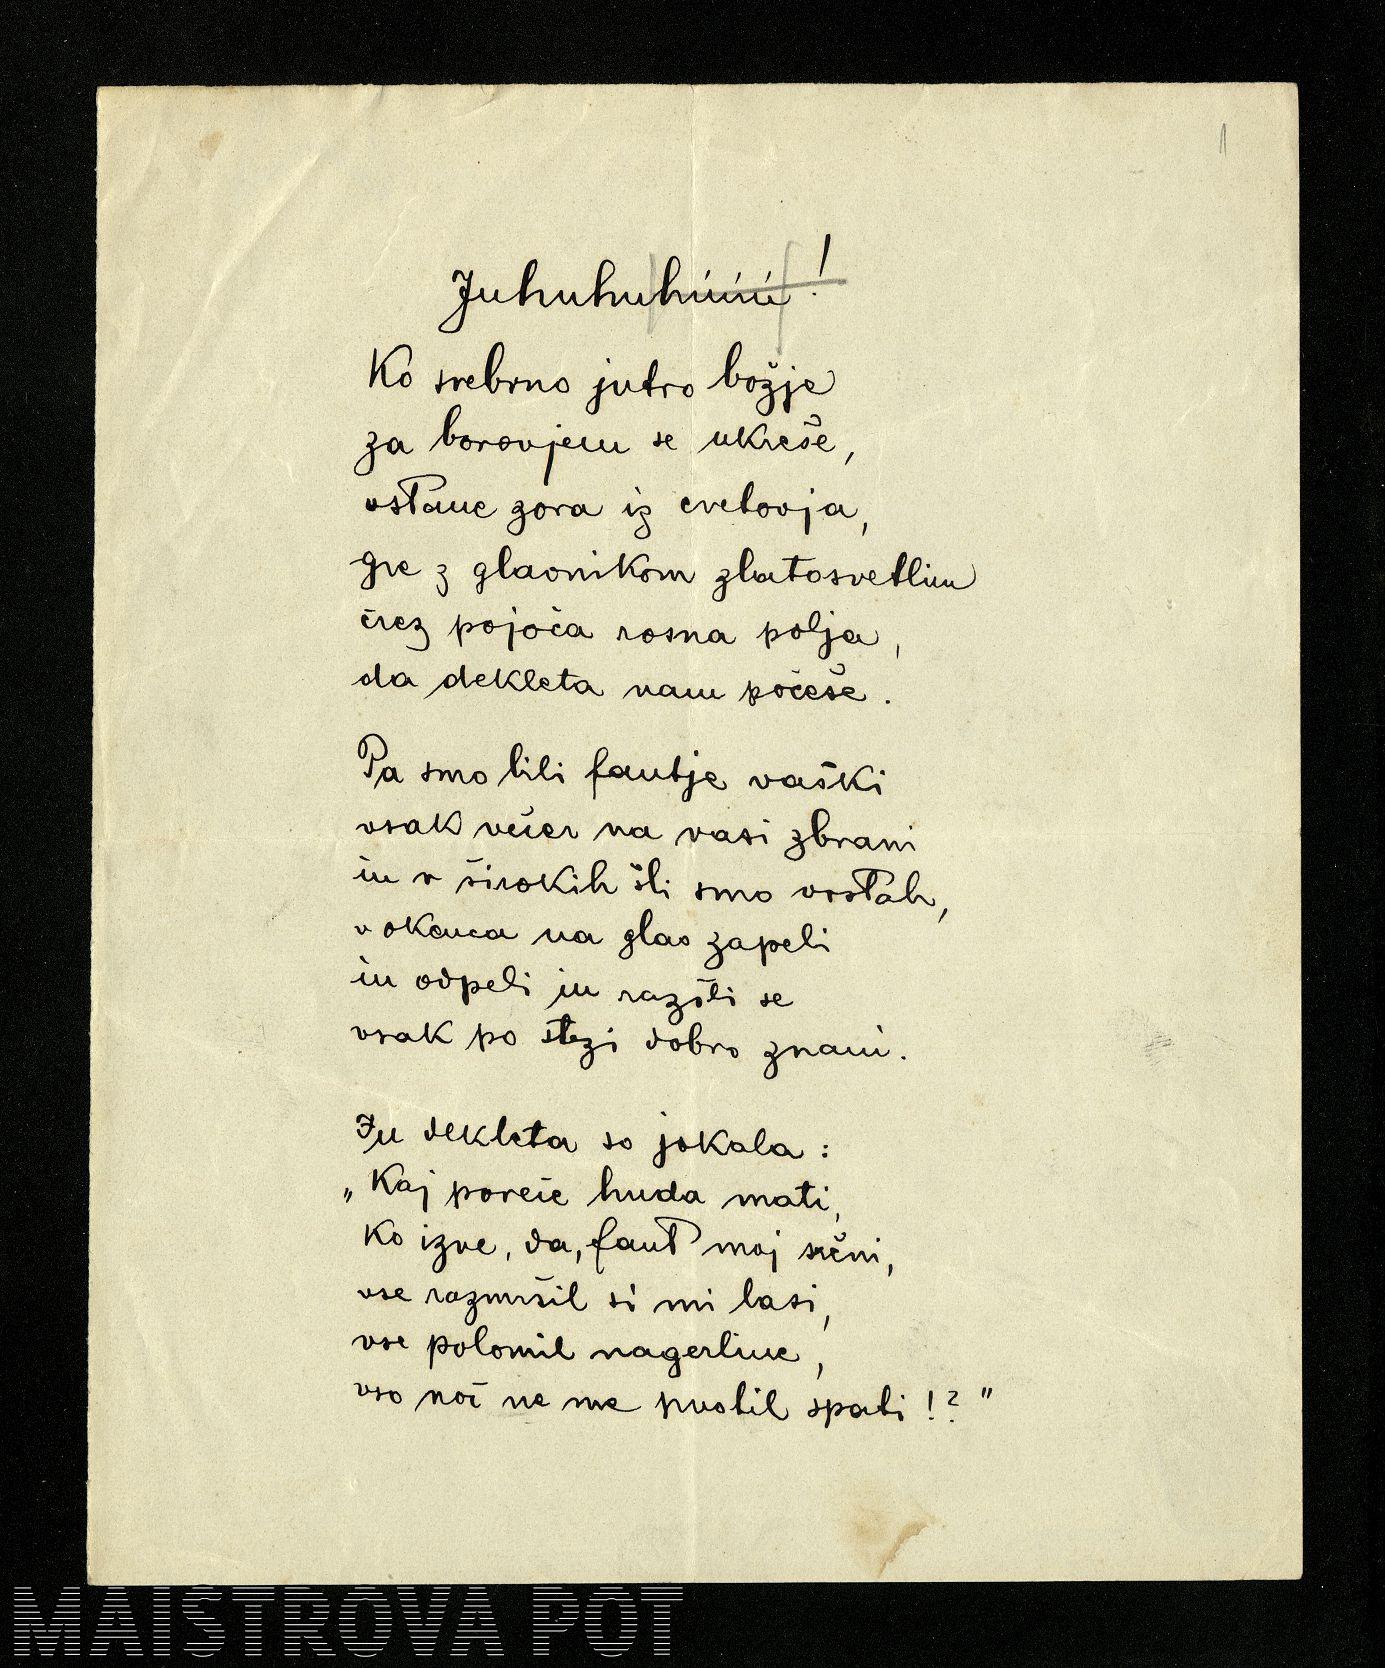 1
Juhuhuhúúú!
Ko srebrno jutro božje
za borovjem se ukreše,
vstane zora iz cvetovja,
gre z glavnikom zlatosvetlim
črez pojoča rosna polja,
da dekleta nam počeše.
Pa smo bili fantje vaški
vsak večer na vasi zbrani
in v širokih šli smo vrstah,
v okenca na glas zapeli
in odpeli in razšli se
vsak po stezi dobro znani.
In dekleta so jokala:
„Kaj poreče huda mati,
ko izve, da, fant moj srčni,
vse razmršil si mi lasi,
vse polomil nageljne,
vso noč ne me pustil spati!?"
MAISTROVA POT